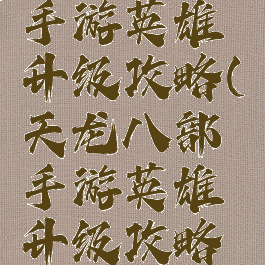 手游英雄
升级攻略(
天龙八部
手游英雄
升级攻略